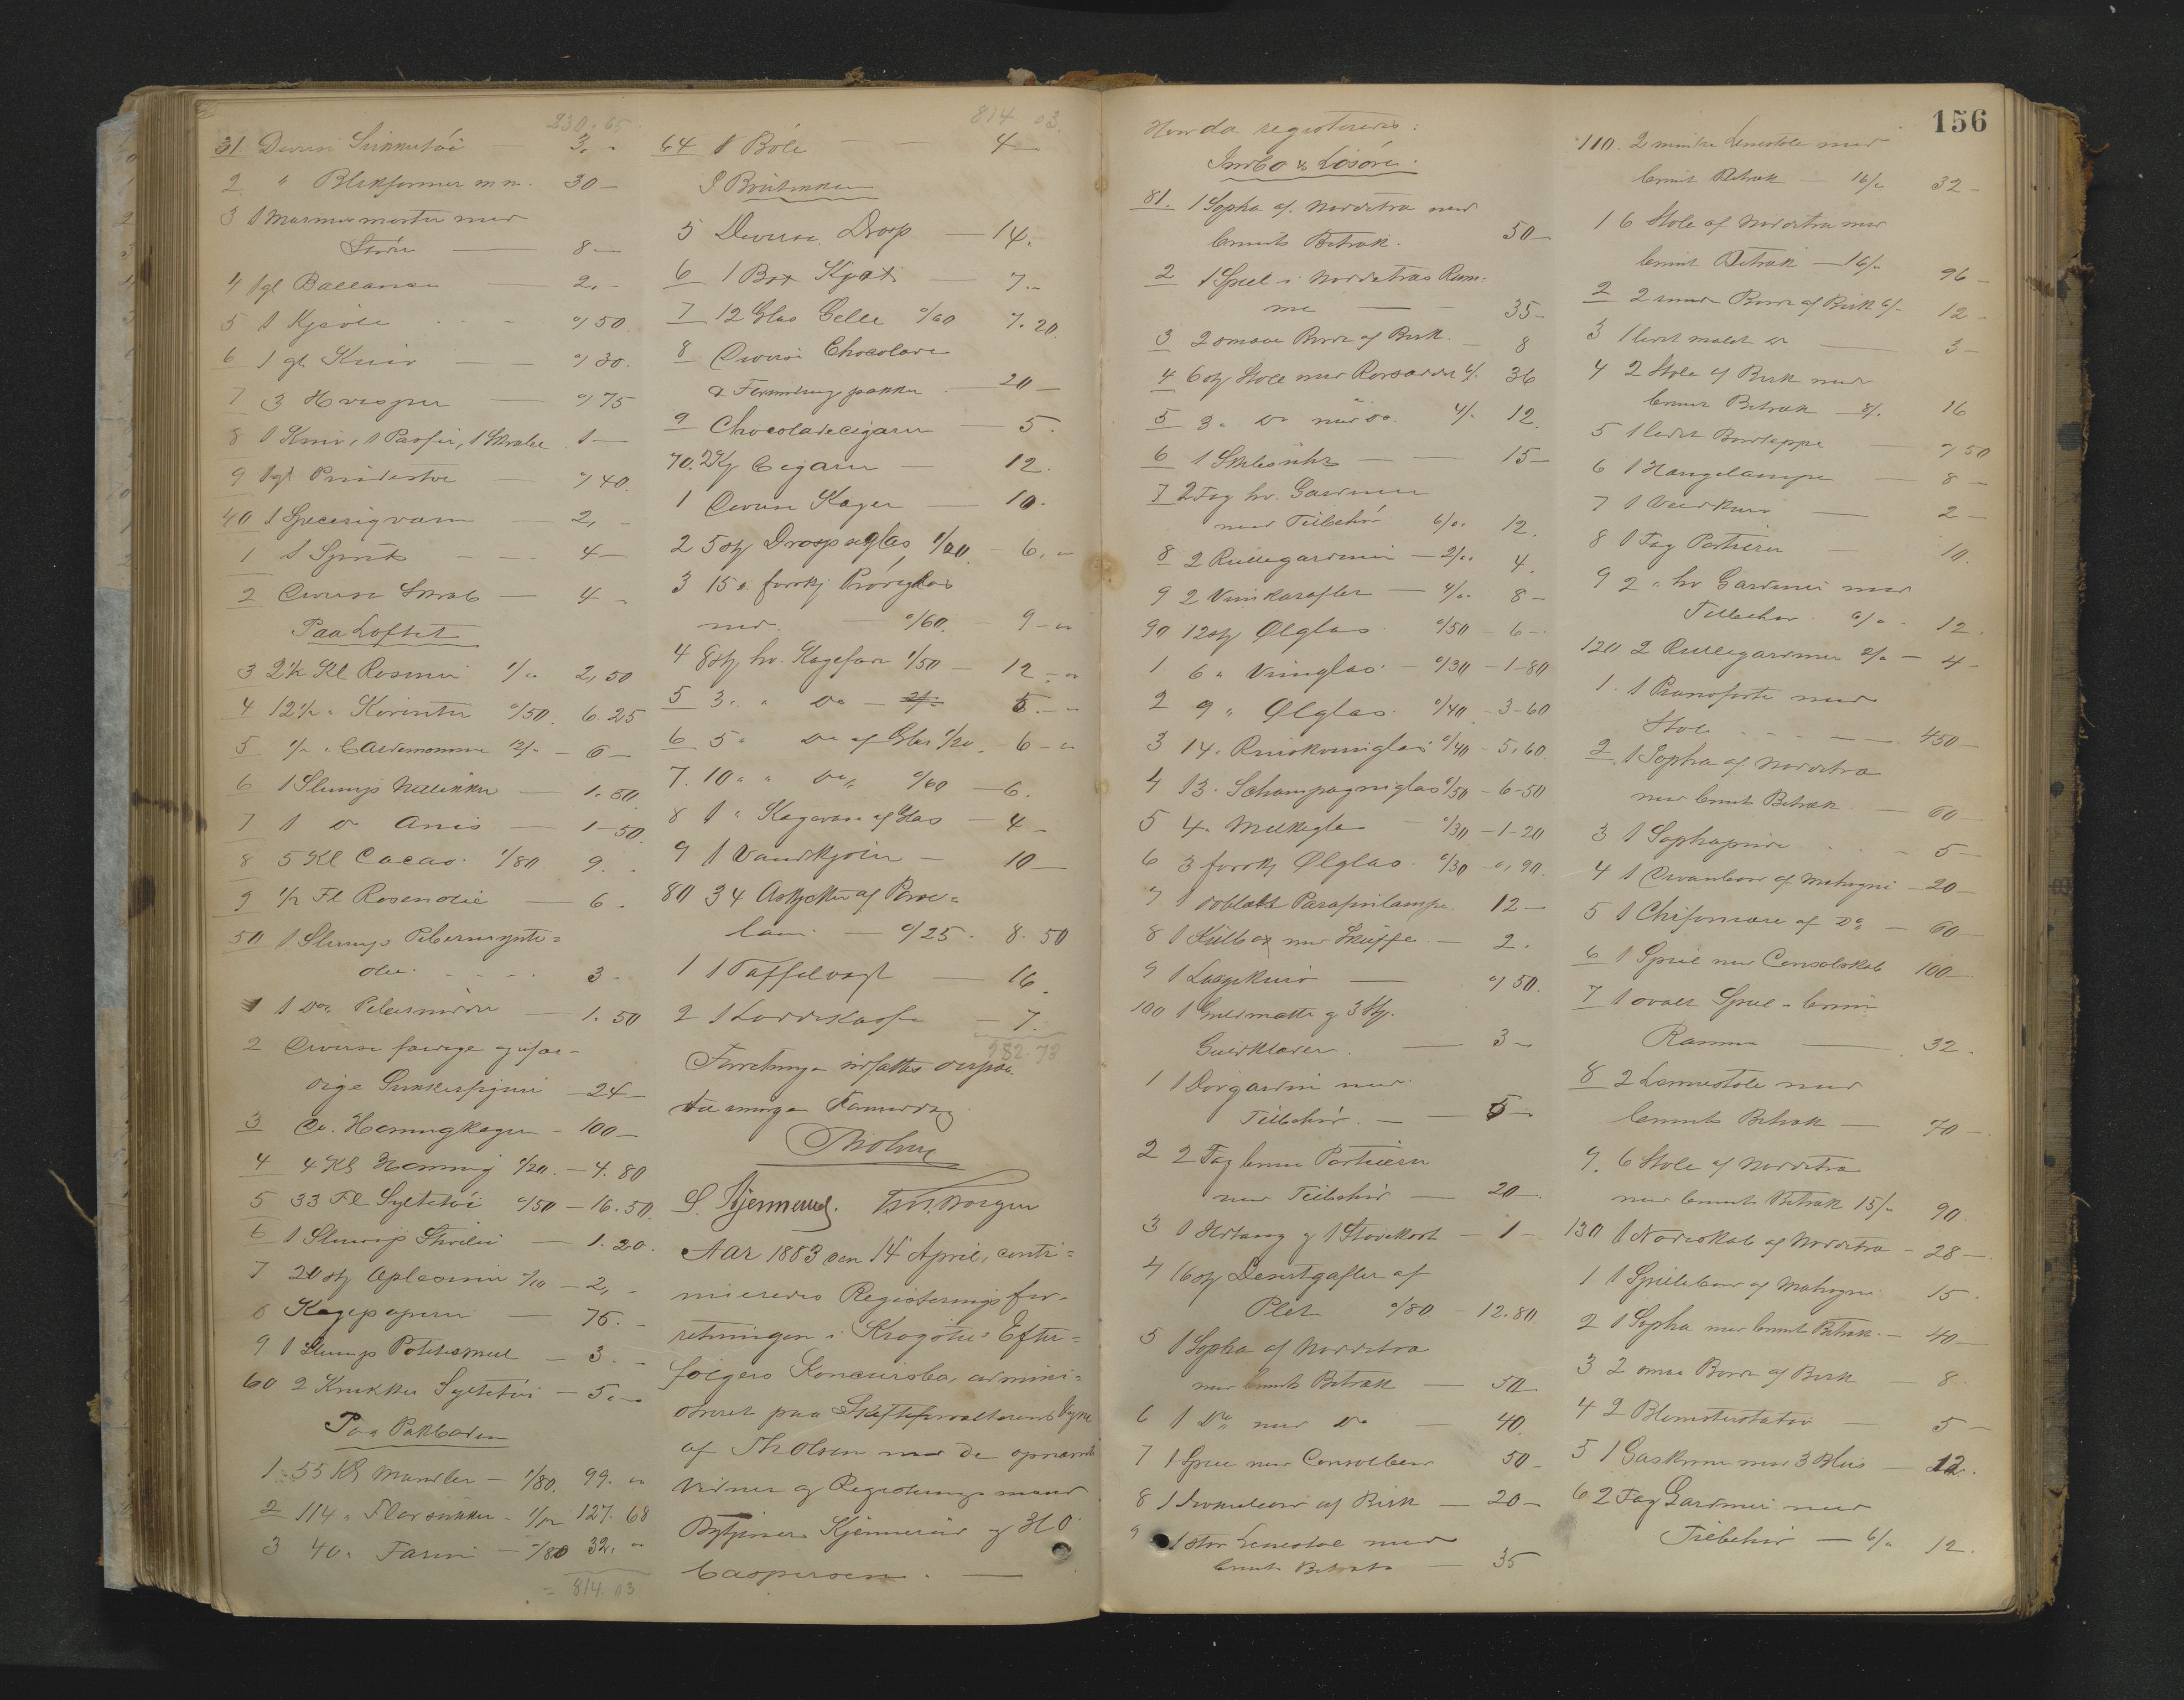 230.65
31 Diverse Sukkertöi — 3.-
2 " Blikformer m m. 30 -
3 1 Marmormorter med
Stöder — 8 -
4 1 gl Ballance — 2. -
5 1 Kjedel . - - "/50
6 1 gl Kniv — "/30.
7 3 Hvisper — "/75
8 1 Kniv, 1 Passer, 1 Skrabe 1 -
9 1 gl — "/40.
40 1 — 2, -
1 1 — - - 4 -
2 Diverse Skrab — 4 -
Paa Loftet
3 2½ Kl Rosiner 1/" 2,50
4 12½ " Korinter "/50. 6.25
5 ½ " Cardemomme 12/" - 6 -
6 1 Slump Nelliker — 1.50
7 1 Do Anis — 1-50
8 5 Kl Cacao. 1/80 9. -
9 ½ Fl Rosenolie — 6 -
50 1 Slump Pebermynte=
olie. - - - - 3 -
1 1 Do — 1.50
2 Diverse færdige og ufær-
dige — 24 -
3 Do. Honningkager - 100 -
4 4 Kl Honning 1/20. - 4.80
5 33 Fl Syltetöi "/50 - 16.50.
6 1 Slump — 1.20.
7 20 stk "/10 - 2, -
8 Kagepapirer — 75. -
9 1 Slump Potetesmeel — 3. -
60 2 Krukker Syltetöi — 5. -
Paa Pakboden
1 55 Kl Mandler — 1/80. 99. "
2 114 " Flor sukker - 127.68
3 40 " Farin — "/80 32. "
= 814.03
814 03.
64 1 — - - 4 -
I Boutikken
5 Diverse Drops — 14.
6 1 — 7. -
7 12 Glas Gelle "/60 7.20
8 Diverse Chocolade
— 20 -
9 Chocoladecigarer — 5.
70. 2 Kl Cigarer — 12.
1 Diverse Kager — 10.
2 5 stk Dropseglas 1/20 - 6. "
3 15 " forskj Pröveglas
med. — "/60. - 9 - "
4 8 stk hv. Kagefade 1/50 - 12 - "
5 3 " " Do — 5. - "
6 5 " Do af Glas 1/20. - 6 - "
7. 10 " " Do " "/60 - 6.
8 1 " Kagevase af Glas — 4 -
9 1 Vandkjöler — 10 -
80 34 Asjetter af Porce=
lain — "/25. 8.50
1 1 Taffelvægt — 16.
2 1 — 7.
982.73
Forretningen udsattes derpaa
til imorgen Formiddag
ThOlsen
S. Kjennerud.
Aar 1883 den 14 April, conti=
nueredes Registreringsfor-
retningen i Krogsties Efter=
fölgers Koncursbo, admini=
streret paa Skifteforvalterens Vegne
af Th Olsen med de opnævnte
Vidner og Registreringsmænd
Kjennerud og H O
Caspersen. —
156
Hvor da registreredes:
Indbo & Lösöre.
81. 1 Sopha af Nöddetræ med
brunt Betræk. 50 -
2 1 Speil i Nöddetræs Ram-
me — 35 -
3 2 smaa Borde af Birk. - 8
4 6 stk Stole med Rörsæder 6/. 36
5 3 " Do 4/" 12.
6 1 — 15 -
7 2 Fag hv. Gardiner
med Tilbehör 6/". 12.
8 2 Rullegardiner - 2/". 4.
9 2 Vinkarafler — 4/". 8 -
90 12 stk Ölglas "/50 - 6 -
1. 6 " Vinglas - "/30 - 1-80
2 9 " Ölglas. "/40. - 3-60
3 14 " Rinskviinsglas "/40 - 5,60.
4 13 " Schampagniglas "/50 - 6-50
5 4 " Melkeglas - "/30 - 1-20
6 3 forskj Ölglas. "/30 - ",90.
7 1 dobbelt Parafinlampe. 12 -
8 1 Kulbox med Skuffe. - 2.
9 1 — "/50.
100 1 Gulvmatte og 3 Stk.
Gulvklæder. — 3 -
1 1 Dörgardin med
Tilbehör. - — 5 -
2 2 Fag brune Portierer
med Tilbehör — 20 -
3 1 Ildtang og 1 Stövekost — 1 -
4 16 stk Desertgafler af
Plet "/80 - 12.80.
5 1 Sopha af Nöddetræ
med brunt Betræk — 50
6 1 Do med Do — 40.
7 1 Speil med Consolbord 50 -
8 1 af Birk — 20 -
9 1 stor Lenestol med
brunt Betræk — 35
110. 2 mindre Lenestole med
brunt Betræk — 16/" 32 -
1 6 Stole af Nöddetræ med
brunt Betræk — 16/" 96 -
2 2 runde Borde af Birk 6/- 12 -
3 1 lidet malet do — 3 -
4 2 Stole af Birk med
brunt Betræk — 8/. 16
5 1 lidet Bordteppe — "/50
6 1 Hængelampe — 8 -
7 1 — 2 -
8 1 Fag Portierer — 10.
9 2 " hv Gardiner med
Tilbehör. 6/". 12.
120 2 Rullegardiner 2/" - 4 -
1. 1 Pianoforte med
Stol - - - — 450 -
2 1 Sopha af Nöddetræ
med brunt Betræk. - 60 -
3 1 Sophapude - - - 5 -
4 1 Divanbord af Mahogni - 20 -
5 1 Chifoniere af Do — 60 -
6 1 Speil med Consolskab 100 -
7 1 ovalt Speil i brun
Ramme — 32.
8 2 Lænestole med
brunt Betræk — 70 -
9. 6 Stole af Nöddetræ
med brunt Betræk 15/" 90.
130 1 Nodeskab af Nöddetræ - 28 -
1 1 Spillebord af Mahogni 15.
2 1 Sopha med brunt Betræk. - 40 -
3 2 smaa Borde af Birk - 8.
4 2 Blomsterstativ — 5 -
5 1 Gaskrone med 3 Blus — 12.
6 2 Fag Gardiner med
Tilbehör — 6/" 12.